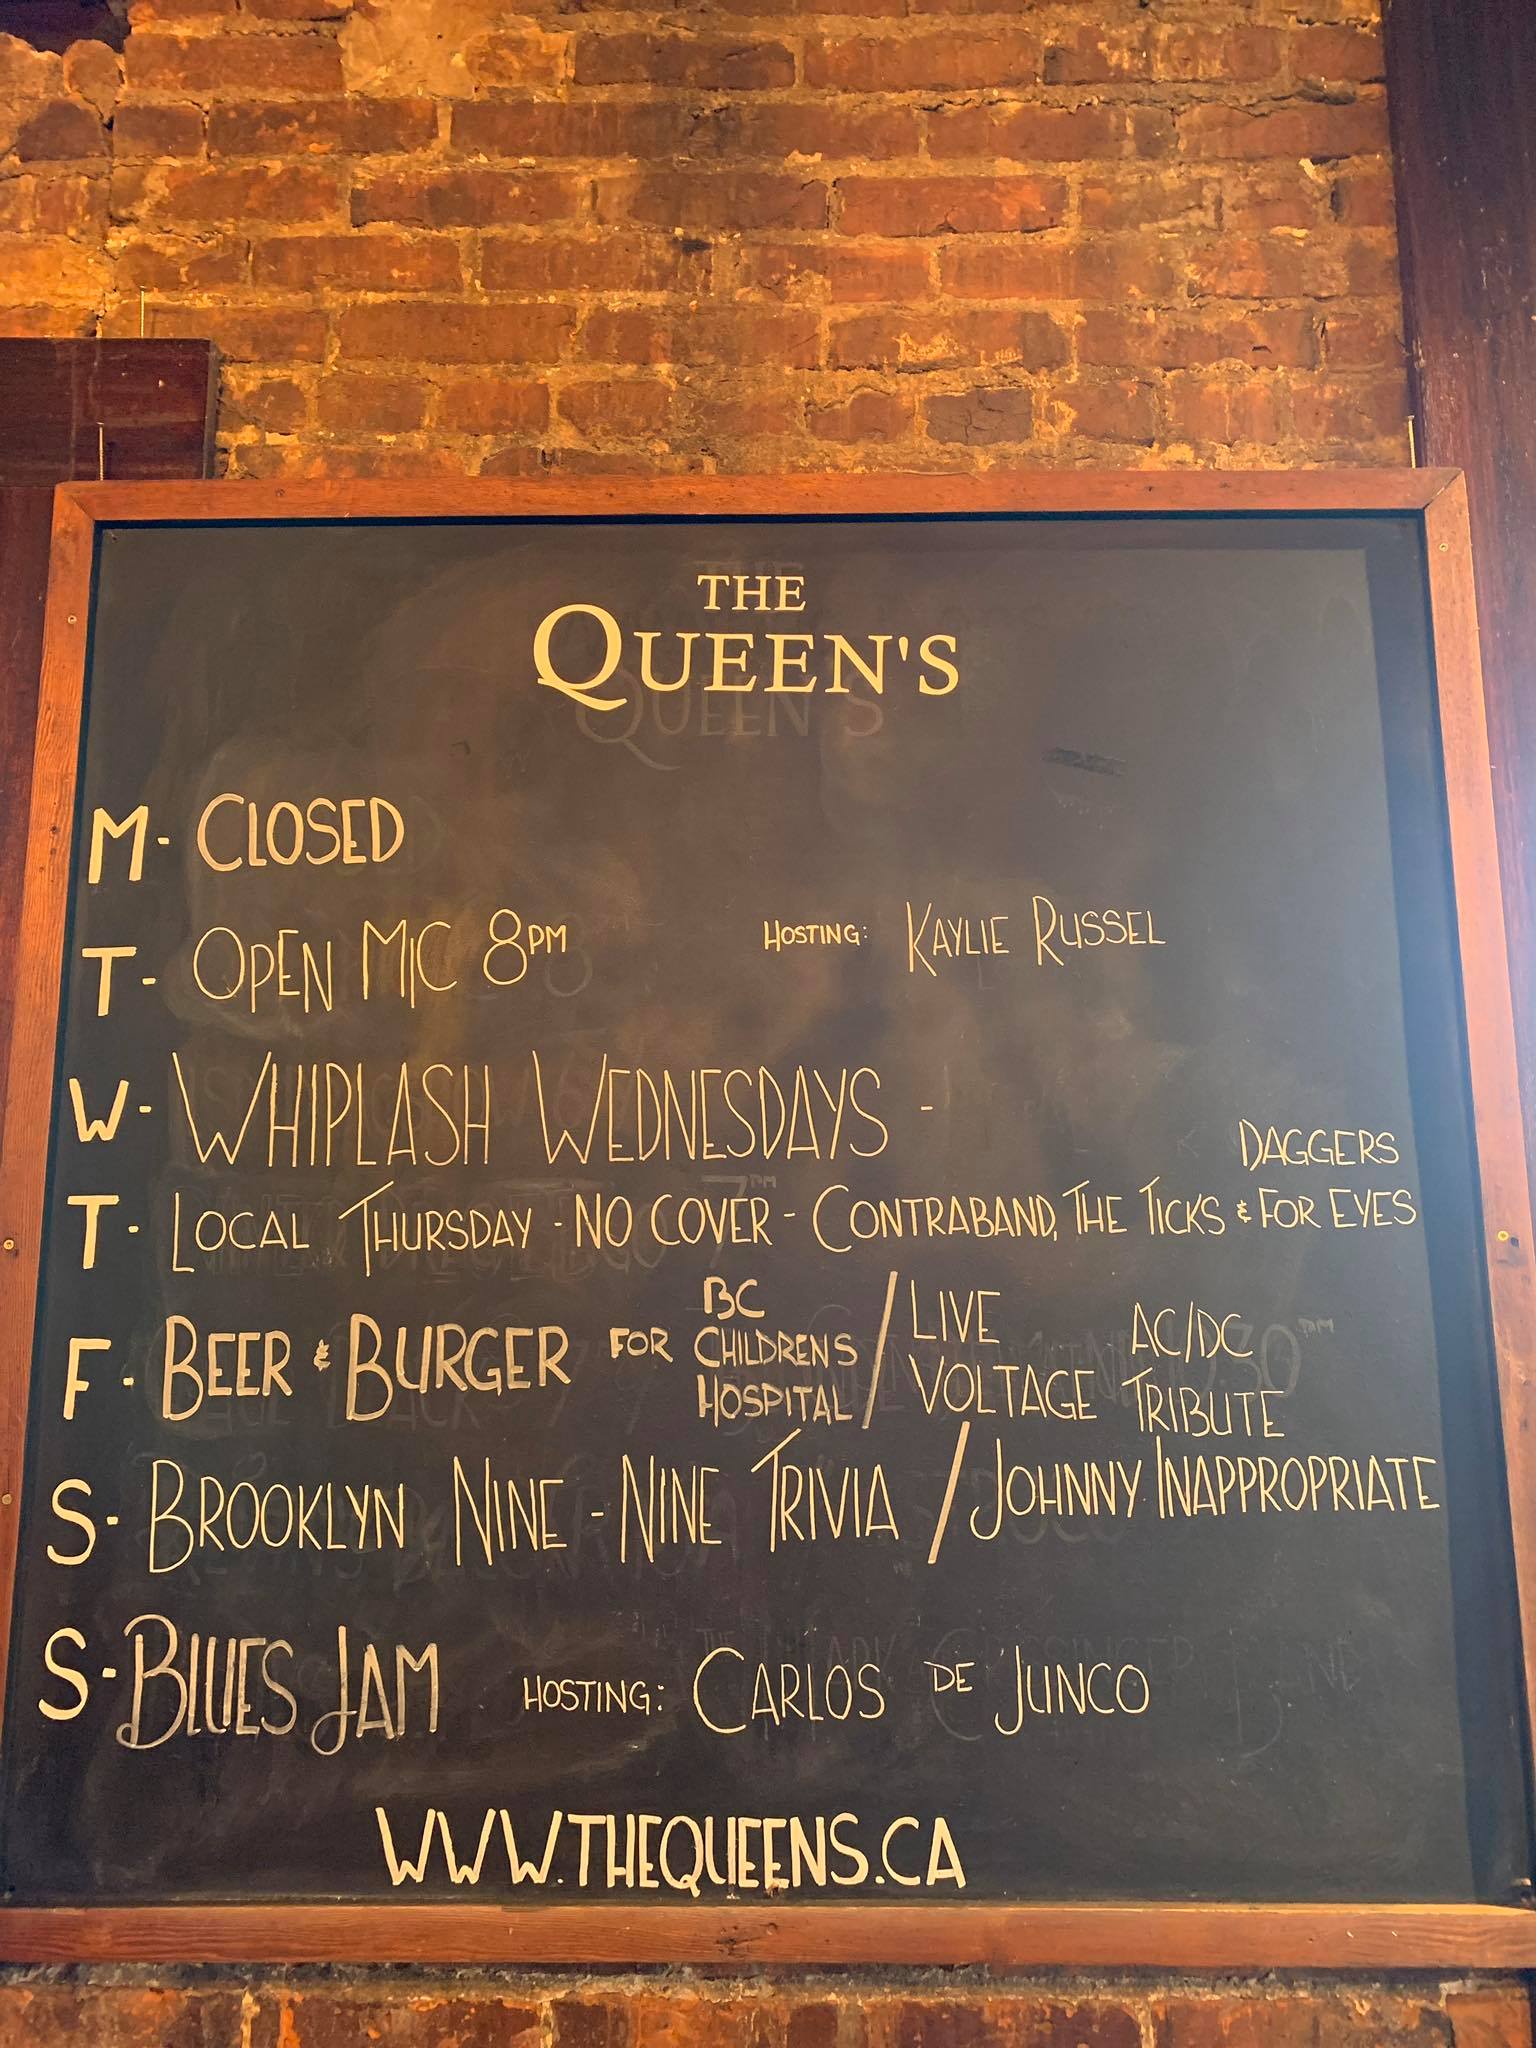 THE
QUEEN'S
M - CLOSED
T - OPEN MIC 8PM HOSTING: KAYLIE RUSSEL
W - WHIPLASH WEDNESDAYS -
T - LOCAL THURSDAY - NO COVER - CONTRABAND, THE TICKS & DAGGERS FOR EYES
F - BEER & BURGER FOR BC CHILDRENS HOSPITAL / LIVE VOLTAGE AC/DC TRIBUTE
S - BROOKLYN NINE-NINE TRIVIA / JOHNNY INAPPROPRIATE
S - BLUES JAM HOSTING: CARLOS DE JUNCO
WWW.THEQUEENS.CA